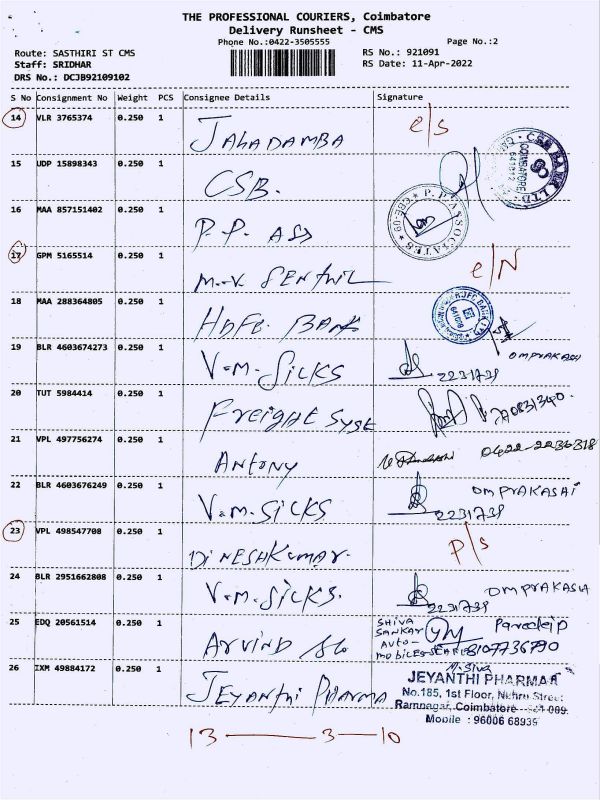 THE PROFESSIONAL COURIERS, Coimbatore
Delivery Runsheet - CMS
Phone No.:0422-3505555
Page No.:2
Route: SASTHIRI ST CMS
RS No.: 921091
Staff: SRIDHAR
RS Date: 11-Apr-2022
DRS No.: DCJB92109102
S No Consignment No Weight PCS Consignee Details Signature
14 VLR 3765374 0.250 1 JAHADAMBA e/s
15 UDP 15898343 0.250 1 CSB. CSB BANK LTD. COIMBATORE
16 MAA 857151402 0.250 1 P.P. ASS P.P. ASSOCIATES CBE-09
17 GPM 5165514 0.250 1 M.V. SENTHIL e/N
18 MAA 288364805 0.250 1 HDFC BANK HDFC BANK
19 BLR 4603674273 0.250 1 V.M. SILKS 2231739 OMPRAKASH
20 TUT 5984414 0.250 1 Freight Syst
21 VPL 497756274 0.250 1 Antony 0422-2236318
22 BLR 4603676249 0.250 1 V.M. SICKS 2231739 OMPRAKASH
23 VPL 498547708 0.250 1 DINESHKUMAR. P/s
24 BLR 2951662808 0.250 1 V.M. SICKS. 2231739 OMPRAKASH
25 EDQ 20561514 0.250 1 ARVIND SHIVA SANKAR AUTO-MOBILES 8107736790
26 IXM 49884172 0.250 1 JEYANTHI PHARMA M. SIVA
JEYANTHI PHARMA
No.185, 1st Floor, Nehru Street
Ramnagar, Coimbatore - 641 009.
Mobile : 96006 68939
13 — 3 — 10